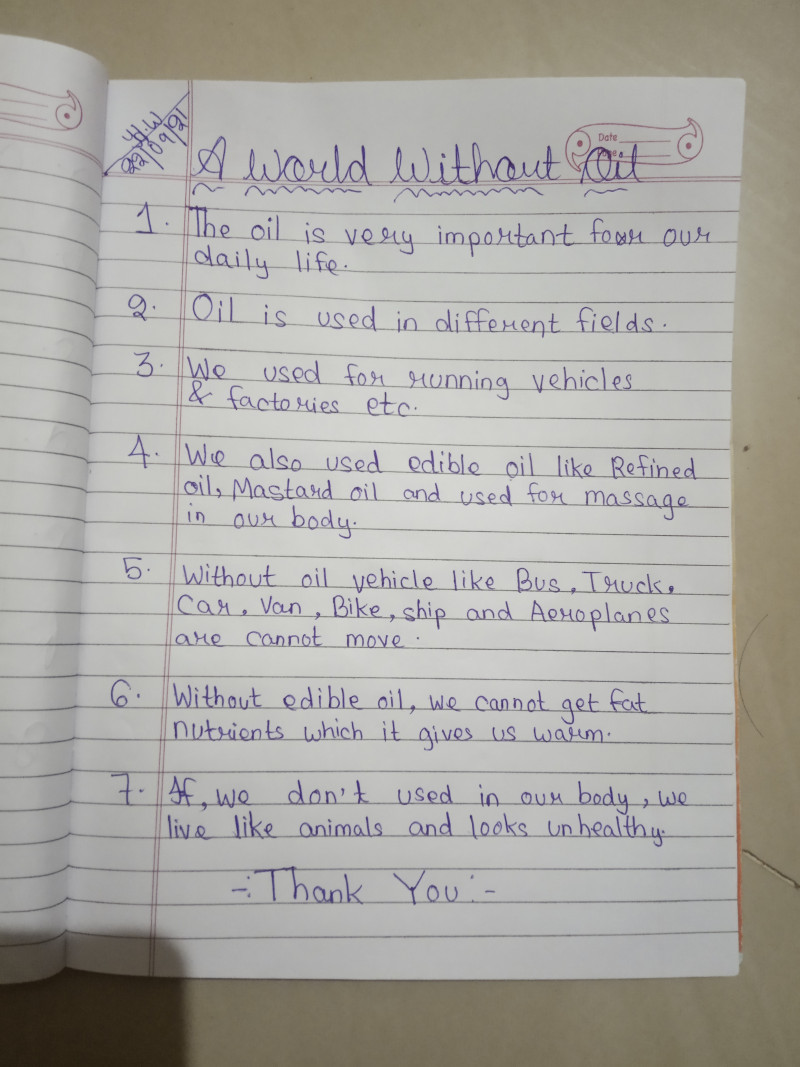 H.W
22/09/21
Date
Page
A World Without Oil
1. The oil is very important for our
daily life.
2. Oil is used in different fields.
3. We used for running vehicles
& factories etc.
4. We also used edible oil like Refined
oil, Mastard oil and used for massage
in our body.
5. Without oil vehicle like Bus, Truck,
Car, Van, Bike, ship and Aeroplanes
are cannot move.
6. Without edible oil, we cannot get fat
nutrients which it gives us warm.
7. If, we don't used in our body, we
live like animals and looks unhealthy.
-: Thank You :-